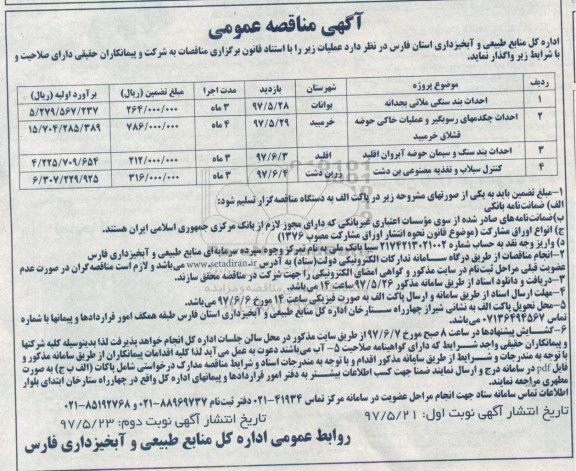 آگهی مناقصه عمومی
اداره کل منابع طبیعی و آبخیزداری استان فارس در نظر دارد عملیات زیر را با استناد قانون برگزاری مناقصات به شرکت و پیمانکاران حقیقی دارای صلاحیت و
با شرایط زیر واگذار نماید.
ردیف موضوع پروژه شهرستان بازدید مدت اجرا مبلغ تضمین (ریال) برآورد اولیه (ریال)
۱ احداث بند سنگی ملاتی بجدانه بوانات ۹۷/۵/۲۸ ۳ ماه ۲۶۴/۰۰۰/۰۰۰ ۵/۲۷۹/۵۶۷/۲۳۷
۲ احداث چکدمهای رسوبگیر و عملیات خاکی حوضه قشلاق خرمبید خرمبید ۹۷/۵/۲۹ ۴ ماه ۷۸۶/۰۰۰/۰۰۰ ۱۵/۷۰۴/۲۸۵/۳۸۹
۳ احداث بند سنگ و سیمان حوضه آبروان اقلید اقلید ۹۷/۶/۳ ۳ ماه ۲۱۲/۰۰۰/۰۰۰ ۴/۲۲۵/۷۰۹/۶۵۴
۴ کنترل سیلاب و تغذیه مصنوعی بن دشت زرین دشت ۹۷/۶/۴ ۳ ماه ۳۱۶/۰۰۰/۰۰۰ ۶/۳۰۷/۲۲۹/۹۲۵
۱-مبلغ تضمین باید به یکی از صورتهای مشروحه زیر در پاکت الف به دستگاه مناقصه گزار تسلیم شود:
الف) ضمانت نامه بانکی
ب) ضمانت نامه های صادر شده از سوی مؤسسات اعتباری غیربانکی که دارای مجوز لازم از بانک مرکزی جمهوری اسلامی ایران هستند.
ج) انواع اوراق مشارکت (موضوع قانون نحوه انتشار اوراق مشارکت مصوب ۱۳۷۶)
د) واریز وجه نقد به حساب شماره ۲۱۷۴۲۱۳۰۲۱۰۰۲ سیبا بانک ملی به نام تمرکز وجوه سپرده سرمایه ای منابع طبیعی و آبخیزداری فارس
۲-انجام مناقصات از طریق درگاه سامانه تدارکات الکترونیکی دولت(ستاد) به آدرس www.setadiran.ir می باشد و لازم است مناقصه گران در صورت عدم
عضویت قبلی مراحل ثبت نام در سایت مذکور و گواهی امضای الکترونیکی را جهت شرکت در مناقصه محقق سازند.
۳-دریافت و دانلود اسناد از طریق سامانه مذکور ۹۷/۵/۲۶ ساعت ۱۴ می باشد.
۴-مهلت ارسال اسناد از طریق سامانه و ارسال پاکت الف به صورت فیزیکی ساعت ۱۴ مورخ ۹۷/۶/۶ می باشد.
۵-محل تحویل پاکت الف به نشانی شیراز چهارراه ستارخان اداره کل منابع طبیعی و آبخیزداری استان فارس طبقه همکف امور قراردادها و پیمانها با شماره
تماس ۰۷۱۳۶۴۹۴۵۶۷ می باشد.
۶-گشایش پیشنهادها در ساعت ۸ صبح مورخ ۱۳۹۷/۶/۷ از طریق سایت مذکور در محل سالن جلسات اداره کل انجام خواهد پذیرفت لذا بدینوسیله کلیه شرکتها
و پیمانکاران حقیقی واجد شرایط که دارای گواهینامه صلاحیت ۵- آب می باشند دعوت به عمل می آید لذا کلیه اقدامات پیمانکاران از طریق سامانه مذکور و
با توجه به مندرجات و شرایط از طریق سامانه مذکور اقدام و با توجه به مندرجات اسناد و شرایط مناقصه مدارک درخواستی شامل پاکات (الف ب ج) به صورت
فایل pdf در سامانه درج و ارسال نمایند ضمناً جهت کسب اطلاعات بیشتر به دفتر امور قراردادها و پیمانهای اداره کل واقع در چهارراه ستارخان ابتدای بلوار
مطهری مراجعه نمایند.
اطلاعات تماس سامانه ستاد جهت انجام مراحل عضویت در سامانه مرکز تماس ۴۱۹۳۴-۰۲۱ دفتر ثبت نام ۸۸۹۶۹۷۳۷-۰۲۱ و ۸۵۱۹۲۷۶۸-۰۲۱
تاریخ انتشار آگهی نوبت اول: ۹۷/۵/۲۱ تاریخ انتشار آگهی نوبت دوم: ۹۷/۵/۲۳
روابط عمومی اداره کل منابع طبیعی و آبخیزداری فارس